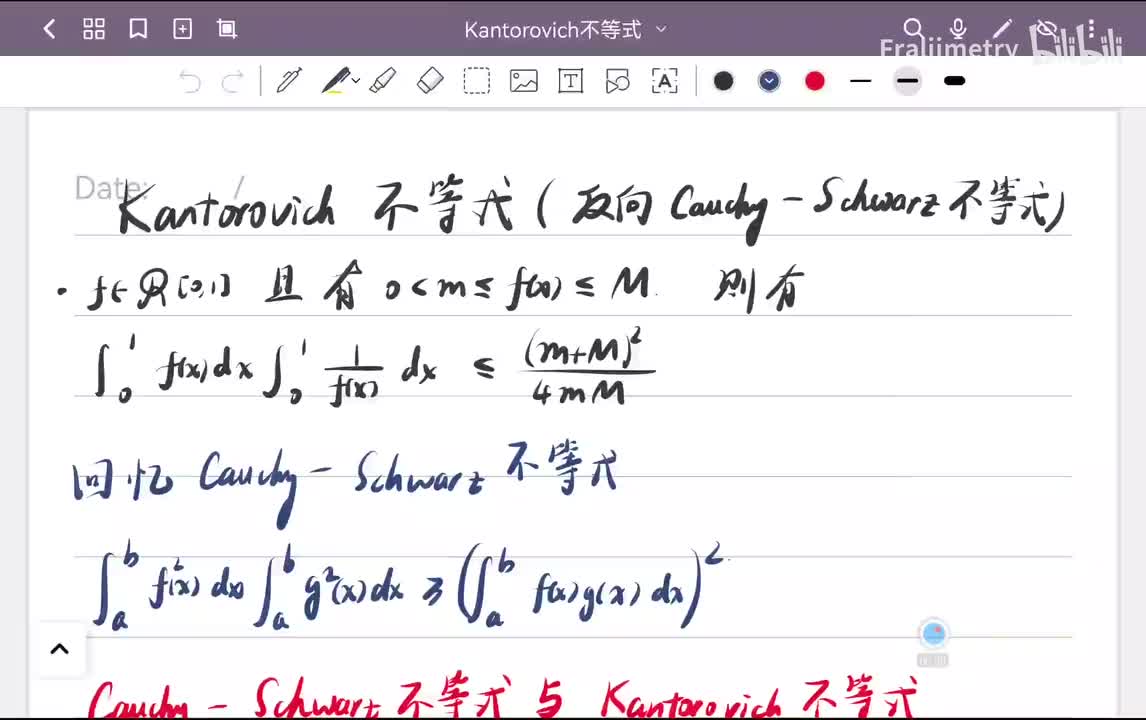 Kantorovich不等式
Eraliimetry bilibili
Date: /
Kantorovich 不等式 ( 反向 Cauchy - Schwarz 不等式 )
· f∈R[0,1] 且有 0 < m ≤ f(x) ≤ M. 则有
∫₀¹ f(x)dx ∫₀¹ 1/f(x) dx ≤ (m+M)²/4mM
回忆 Cauchy - Schwarz 不等式
∫ₐᵇ f²(x) dx ∫ₐᵇ g²(x) dx ≥ (∫ₐᵇ f(x)g(x) dx)²
00:00
Cauchy - Schwarz 不等式与 Kantorovich 不等式